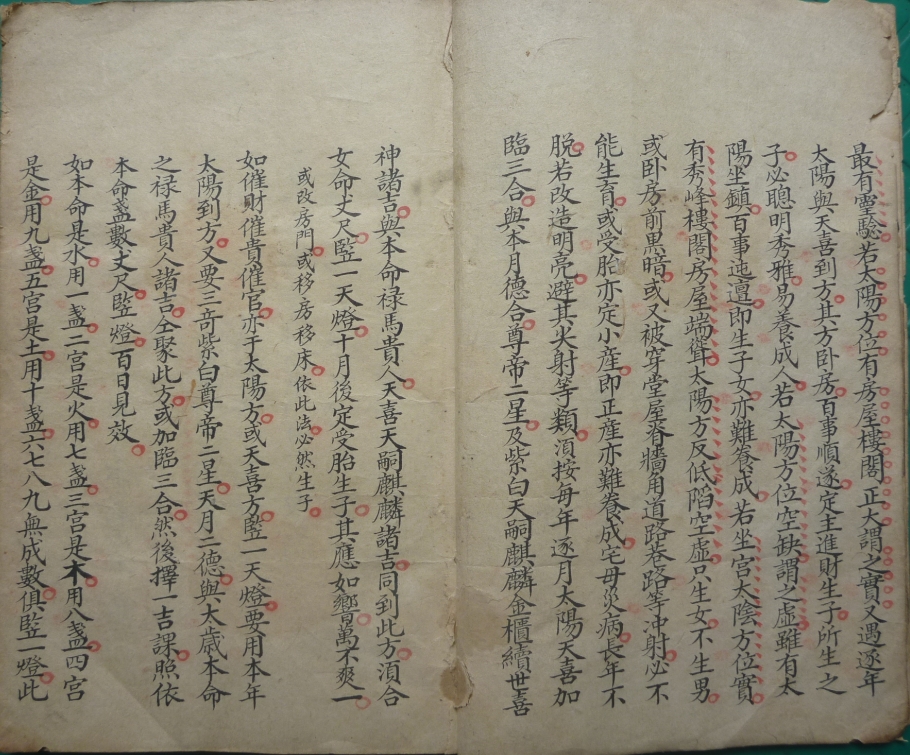 最有霊驗若太陽方位有房屋樓閣正大謂之實又遇逐年
太陽與天喜到方其方卧房百事順遂定主進財生子所生之
子必聰明秀雅易養成人若太陽方位空缺謂之虛雖有太
陽坐鎮百事迍邅即生子女亦難養成若坐宮太陰方位實
有秀峰樓閣房屋端聳太陽方反低陷空虛只生女不生男
或卧房前黒暗或又被穿堂屋脊牆角道路巷路等冲射必不
能生育或受胎亦定小産即正産亦難養成宅母災病長年不
脱若改造明亮避其尖射等類湏按每年逐月太陽天喜加
臨三合與本月德合尊帝二星及紫白天嗣麒麟金櫃續世喜
神諸吉與本命禄馬貴人天喜天嗣麒麟諸吉同到此方湏合
女命丈尺竪一天燈十月後定受胎生子其應如響萬不爽一
或改房門或移房移床依此法必然生子
如催財催貴催官亦于太陽方或天喜方竪一天燈要用本年
太陽到方又要三竒紫白尊帝二星天月二德與太歲本命
之禄馬貴人諸吉仝聚此方或加臨三合然後擇一吉課照依
本命盞數丈尺竪燈百日見效
如本命是水用一盞二宮是火用七盞三宮是木用八盞四宮
是金用九盞五宮是土用十盞六七八九無成數俱竪一燈此